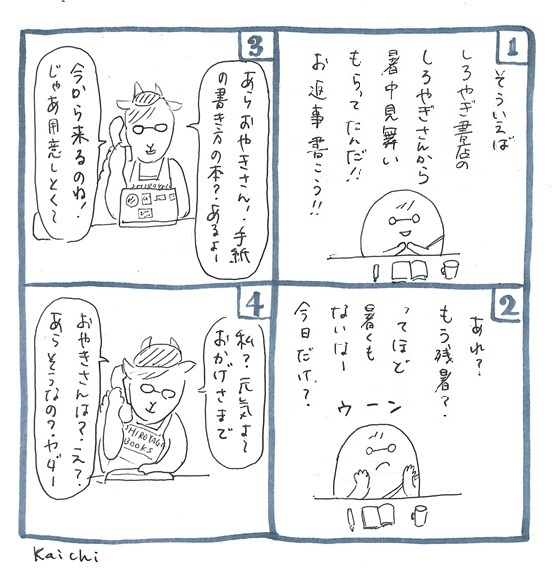 1
そういえば
しろやぎ書店の
しろやぎさんから
暑中見舞い
もらってたんだ!!
お返事書こう!!
2
あれ?
もう残暑?
ってほど
暑くも
ないなー
今日だけ?
ウーン
3
あらおやきさん!手紙
の書き方の本?あるよー
今から来るのね!
じゃあ用意しとく〜
SHIROYAGI
4
私?元気よ〜
おかげさまで
おやきさんは?え?
あらそうなの?ヤダー
SHIROYAGI
BOOKS
Kaichi